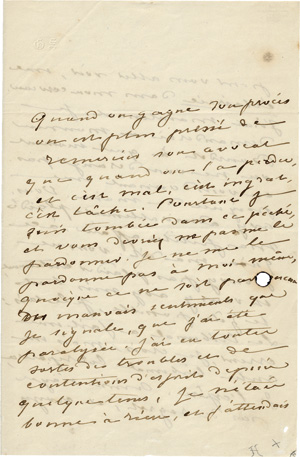 Quand on gagne son procès
on est plus pressé de
remercier son avocat
que quand on l'a perdu,
et c'est mal, c'est ingrat,
c'est lâche. Pourtant je
suis tombée dans ce péché,
et vous devriez me
pardonner. Je ne me le
pardonne pas à moi-même,
quoique ce ne soit pas
mauvais sentiments que
je signale, que j'ai été
paralysée. J'ai eu toutes
sortes de troubles et de
contentions d'esprit depuis
quelque tems, je n'étais
bonne à rien, et j'attendais